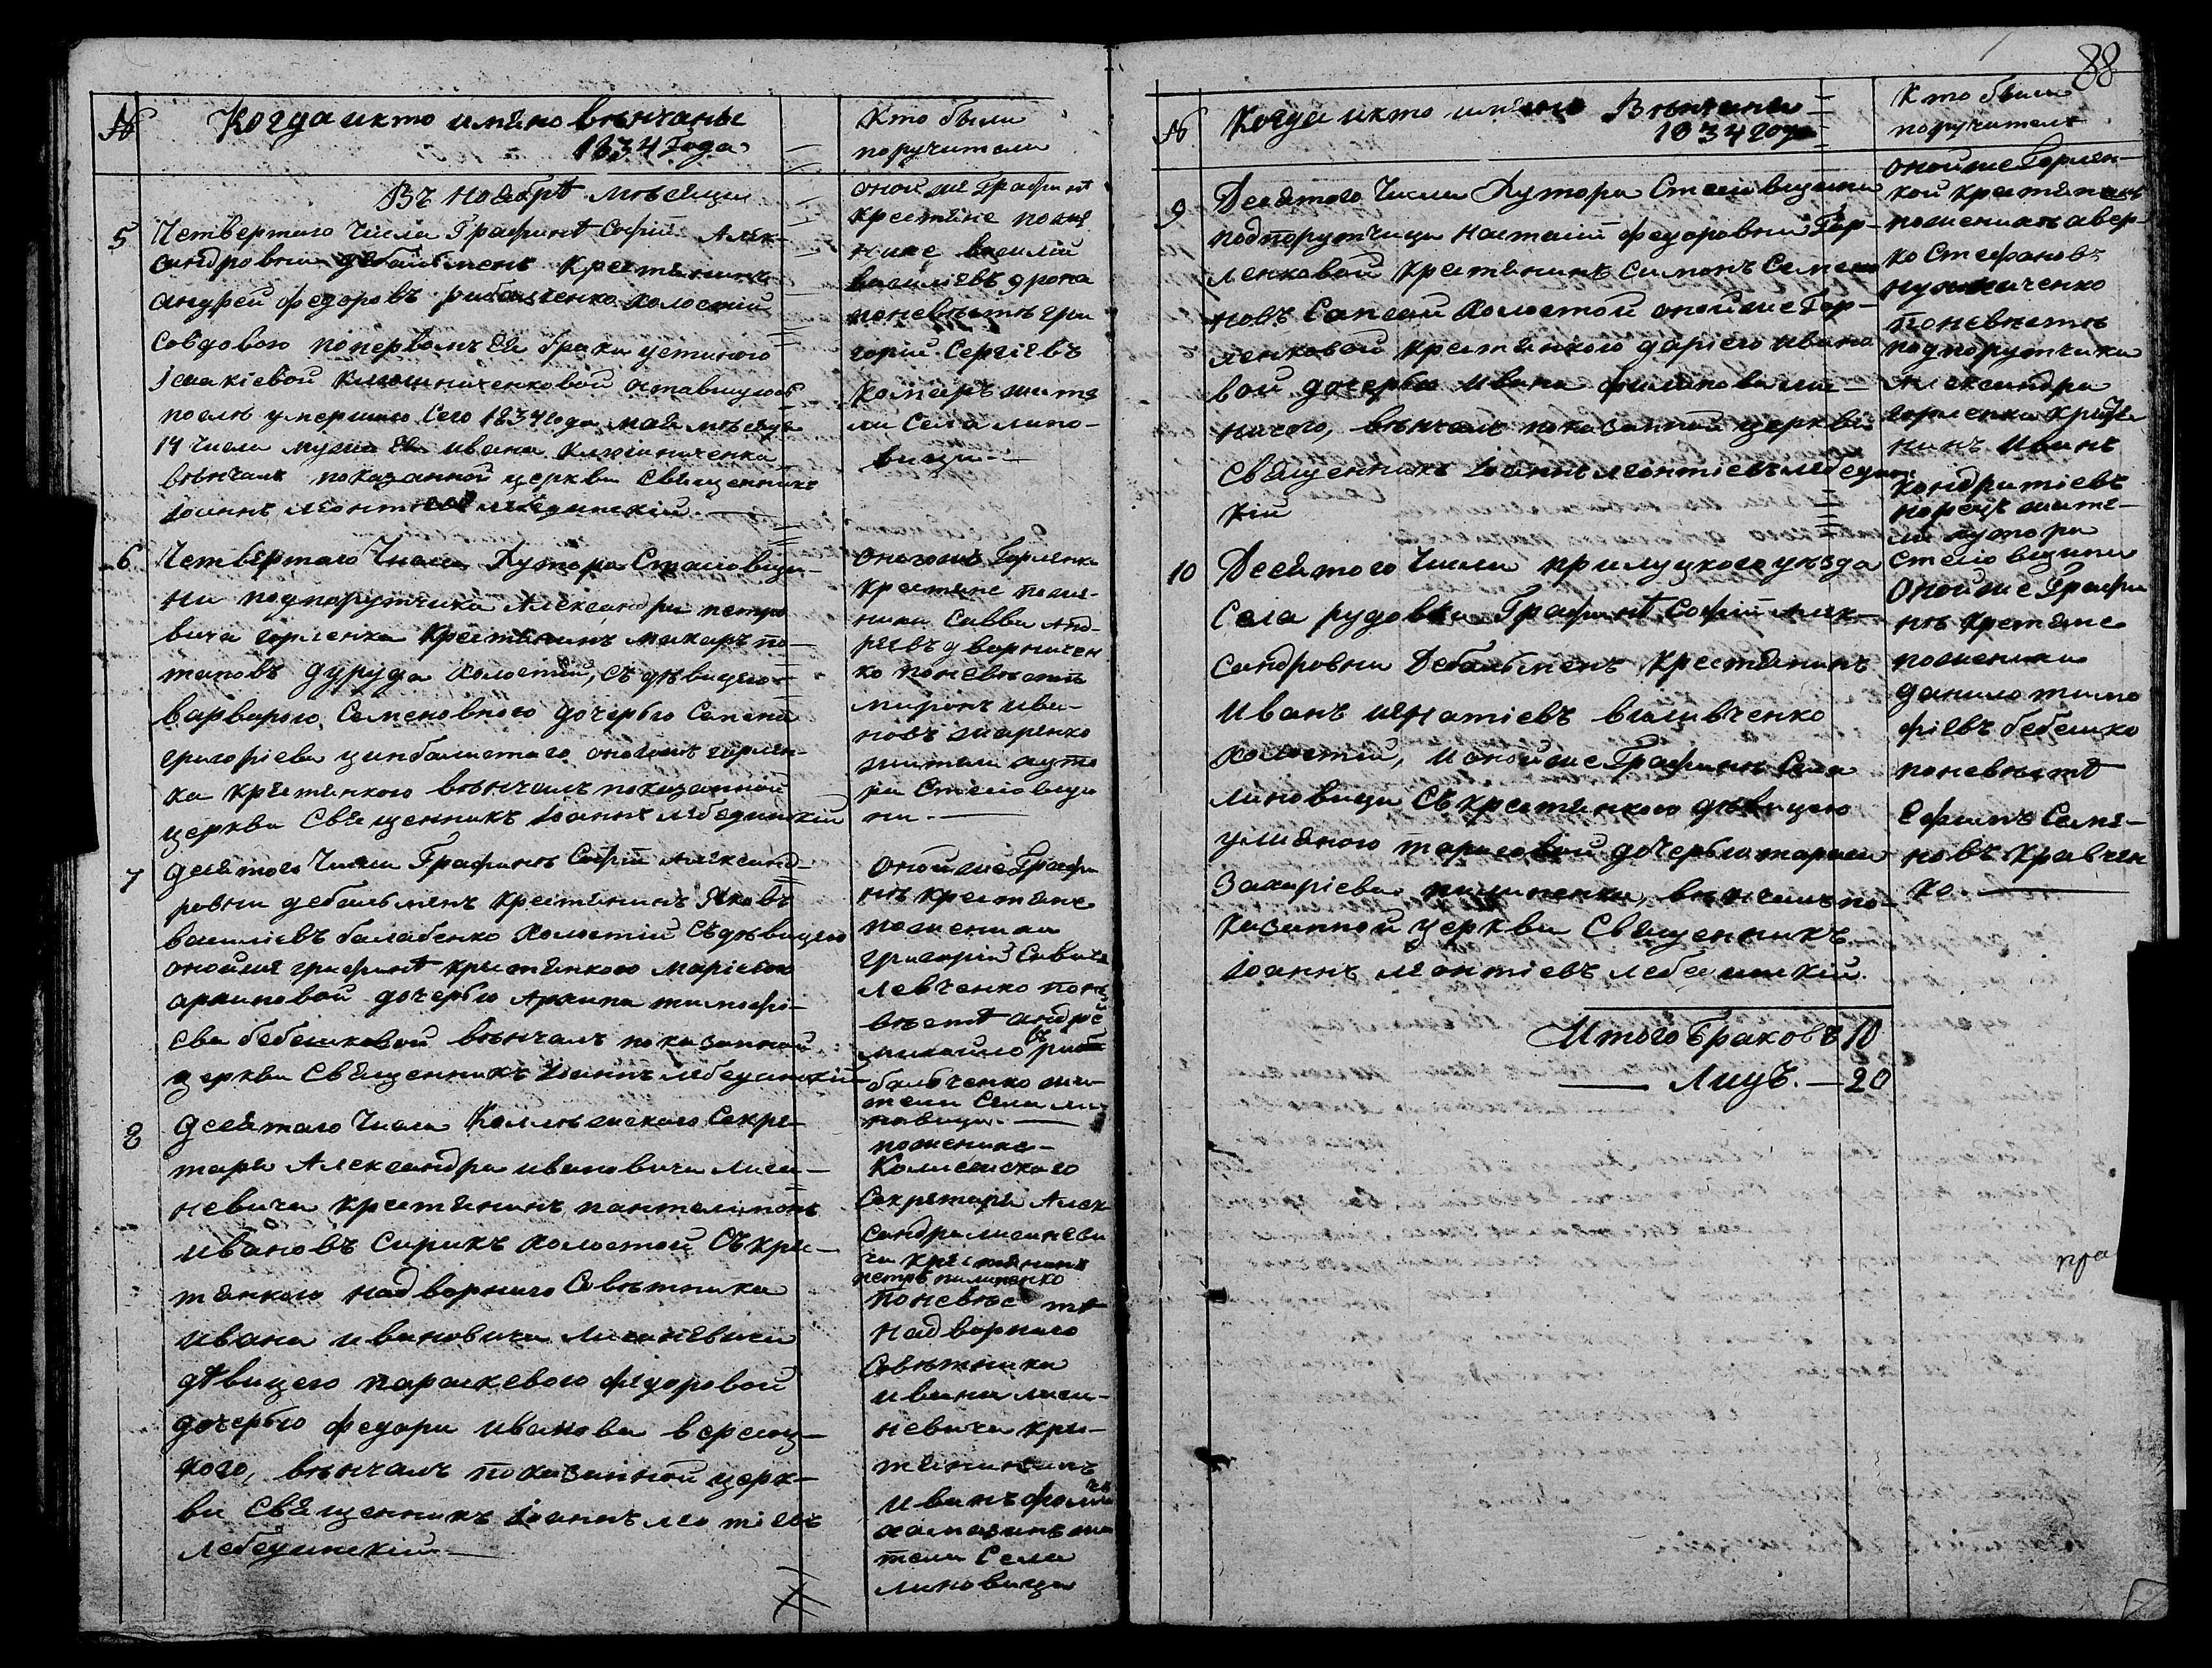 № Когда и кто имяно вѣнчаны
1834 Года
Кто были
поручители
Въ ноябрѣ мѣсяцѣ
5 Четвертого Числа Графинѣ Софій Алек-
сандровны дебальменъ крестянинъ
андрей федоровъ холостій
совдовою поперьвомъ Ея браки устиною
оставшуюсь
послѣ умершаго Сего 1834 года мая мѣсяца
14 числа мужа Ея ивана
вѣнчалъ показанной церкви Священникъ
Іоаннъ леонтіевъ лебединскій. —
оной же Графинѣ
крестяне поже
нихе василій
василіевъ дрога
поневѣстѣ гри
горій Сергіевъ
жите
ли Села лино-
вици. —
6 Четвертого Числа Хутора Стасіовщи-
ни подпорутчика Александра петро
вича горленка крестянинъ макаръ по-
таповъ дуруда холостій, съ дѣвицею
варварою Семеновною дочерью Семена
григоріева цинбалистаго оногожъ горлен-
ка крестянкою вѣнчалъ показанной
церкви Священникъ Іоаннъ лебединскій
оногожъ Горленка
крестяне поже-
нихи Савва Анд-
ріевъ дворничен
ко поневѣстѣ
миронъ ива-
новъ
жители хуто
ра Стасіовщи
ни. —
7 десятого Числа Графинѣ Софій Александ-
ровни дебальменъ крестянинъ Яковъ
василіевъ балабенко Холостій Съ дѣвицею
оной же графинѣ крестянкою маріею
архиповой дочерью Архипа тимофі-
ева бебешковой вѣнчалъ показанной
церкви Священникъ Іоаннъ лебединскій
оной же Графи
нѣ крестяне
поженихи
григорій Савичъ
левченко поне
вѣстѣ андрей
михайло
жи-
тели Села ли-
новици. —
8 десятого Числа Коллѣжского Секре-
таря Александра ивановича лиса-
невича крестянинъ пантелимонъ
ивановъ Сирикъ холостой Съ крес-
тянкою надворного Совѣтника
ивана ивановича лисаневича
дѣвицею параскевою федоровой
дочерью федора иванова верещ-
кого, вѣнчалъ показанной церк-
ви Священникъ Іоаннъ леотіевъ
лебединскій —
поженихе-
Колежского
Секретаря Алек
сандра лисаневи
ча крестянинъ
петръ пилипенко
поневѣстѣ
надворного
Совѣтника
ивана лиса-
невича крес-
тянининъ
иванъ
жи
тели Села
линовици
88
№ Когда и кто имяно Вѣнчаны
1834 года
Кто были
поручители
9 Десятого Числа Хутора Стасіовщини
подпорутчици настасій федоровни Гор-
ленковой крестянинъ Симонъ Семио
новъ Сапсай Холостой оной же Гор-
ленковой крестянкою даріею ивано
вой дочерью ивана
вѣнчалъ показанной церкви
Священникъ Іоаннъ леонтіевъ лебединс
кій
оной же Горлен-
кой крестянинъ
поженихѣ авер
ко Стефановъ
поневѣстѣ
подпорутчика
Александра
горленка крестя
нинъ иванъ
кондратіевъ
жите-
ли хутора
Стасіовщини
10 Десятого Числа прилуцкого уезда
Села рудовки Графинѣ Софій Алек-
сандровни Дебальменъ крестянинъ
Иванъ игнатіевъ
холостій, и оной же Графинѣ Села
линовици Съ крестянкою дѣвицею
улианою тарасовой дочерью тараса
Захаріева пилипенка, вѣнчалъ по-
казанной церкви Священникъ
Іоаннъ леонтіевъ лебединскій.
Оной же Графи
нѣ крестяне
поженихи
данило тимо
фіевъ бебешко
поневѣстѣ
Ефимъ Семе-
новъ кравчен
ко. —
Итого Браковъ 10
— Лицъ. — 20
пра